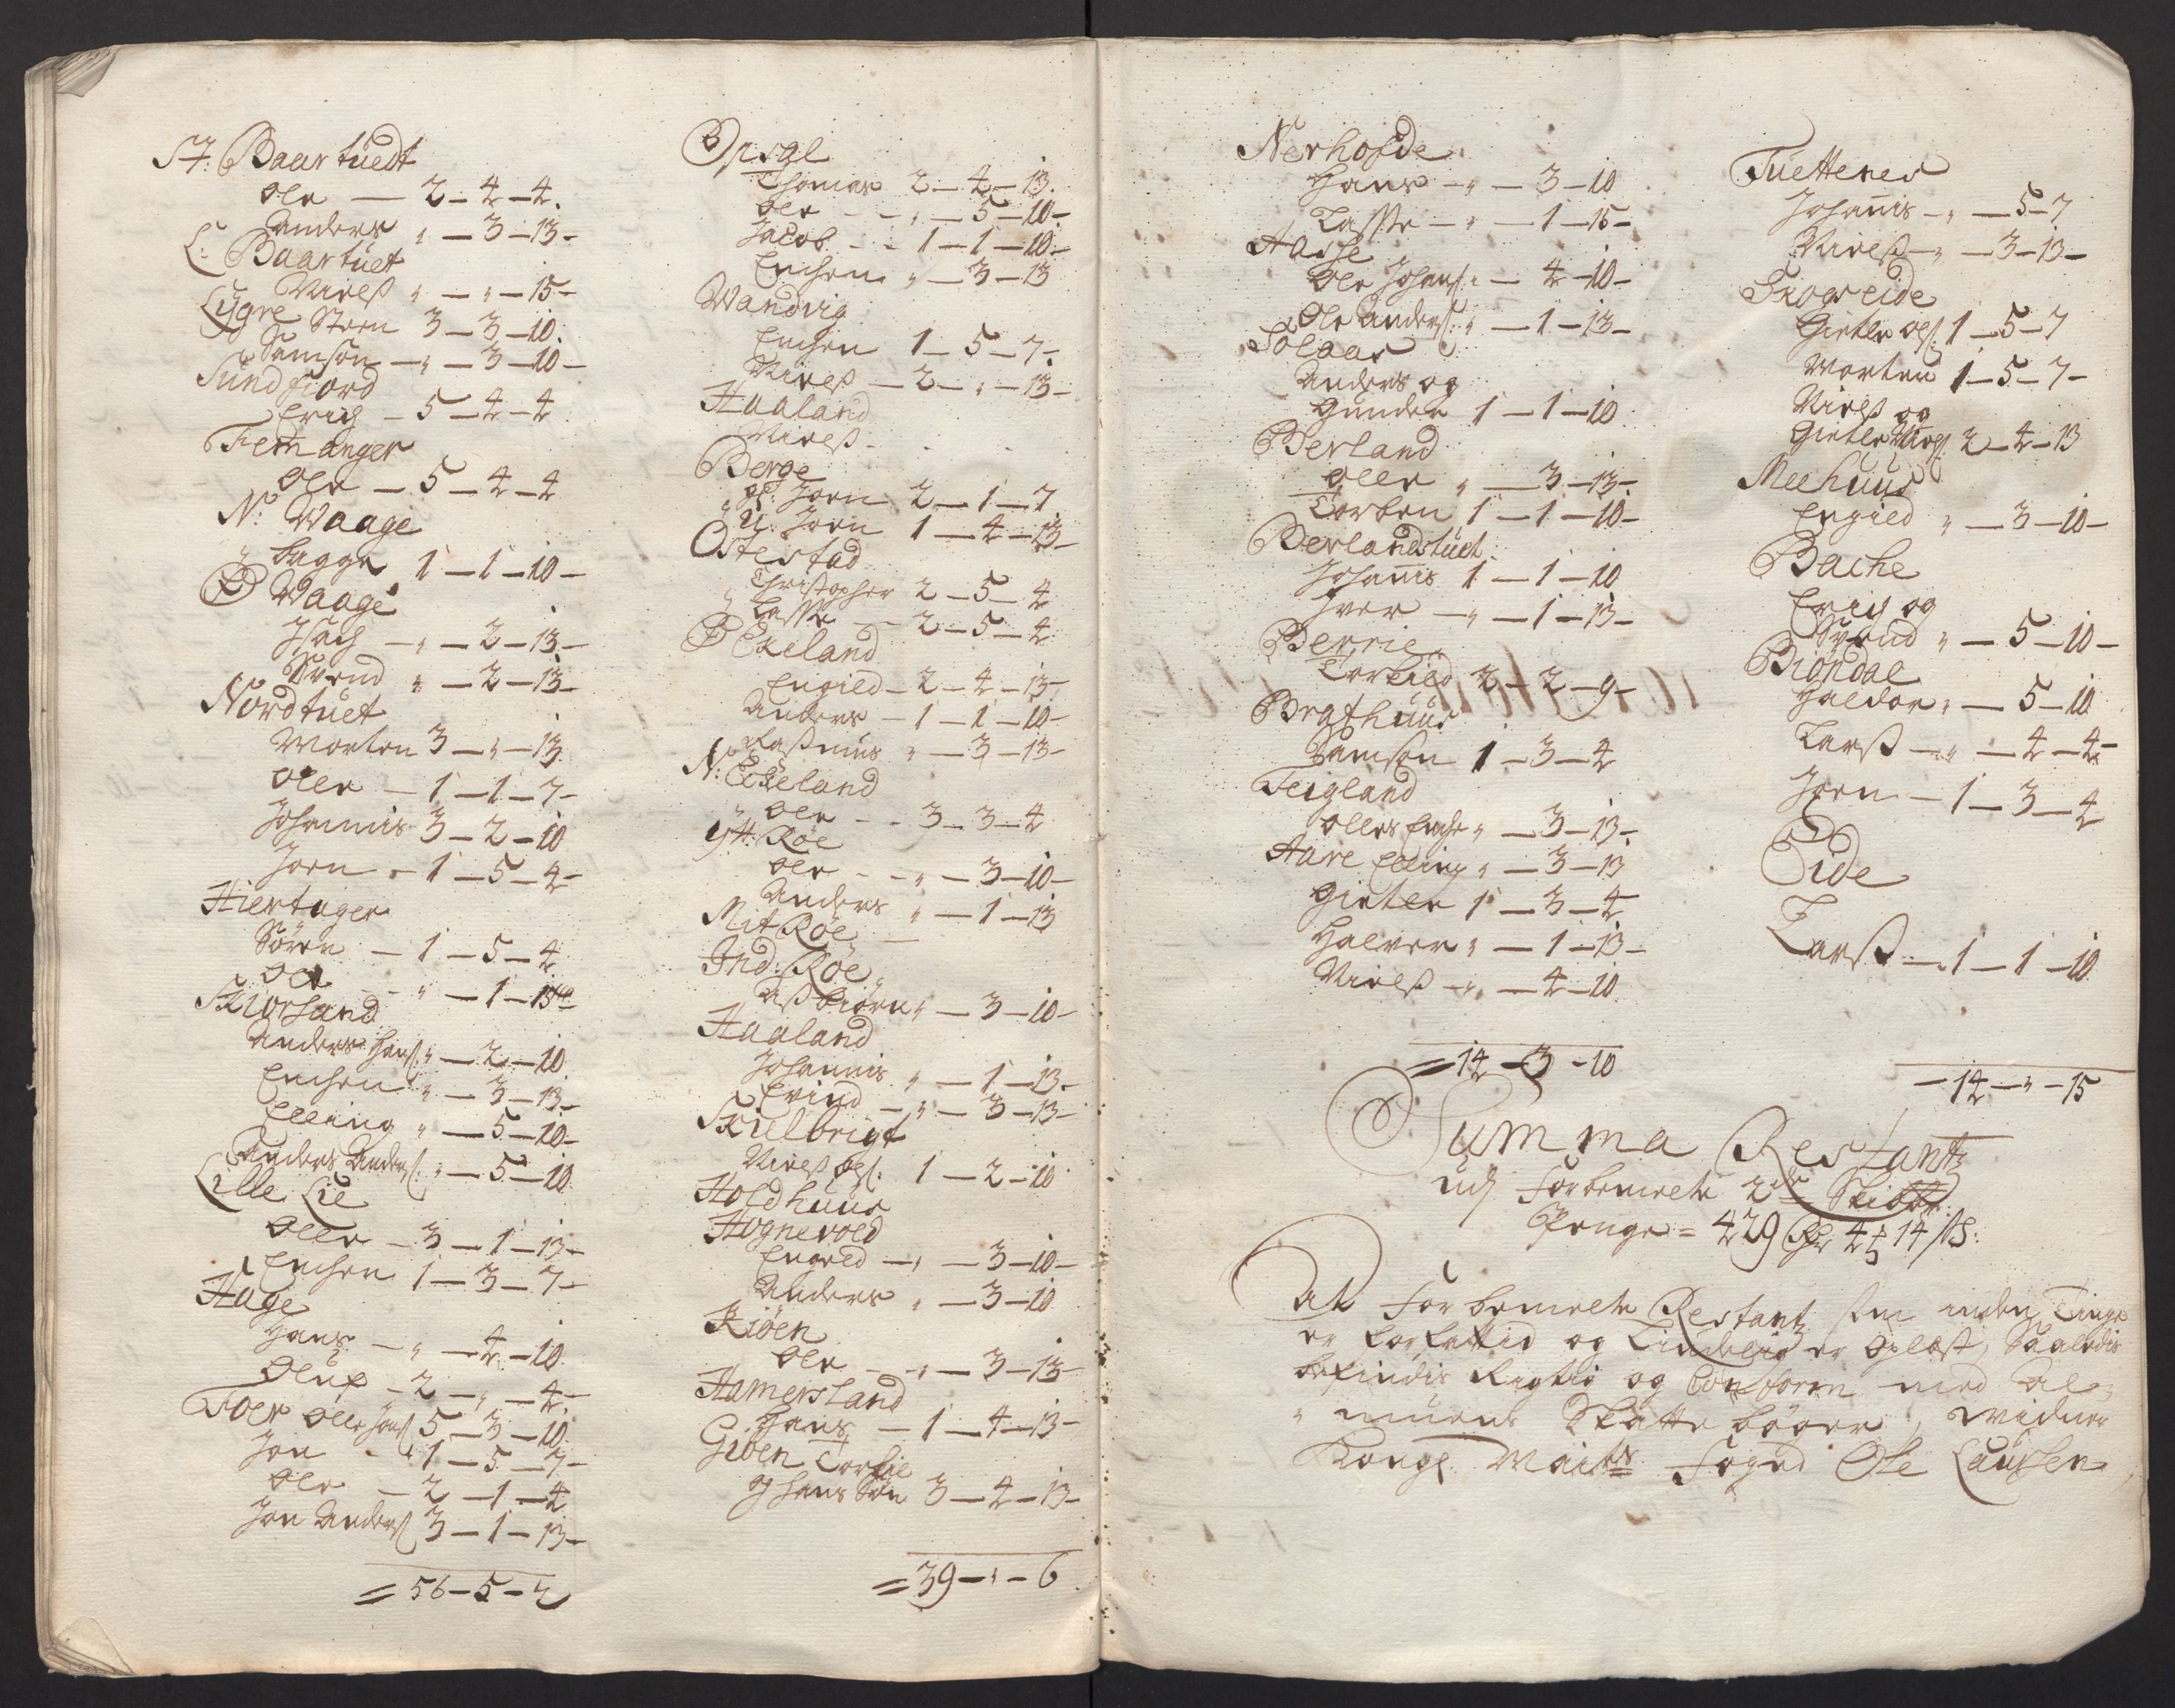 St: Baartuedt
Ole — 2 – 4 – 4.
Anders „ — 3 – 13 –
L: Baartuet
Nielß „ — „ – 15 –
Lygre Steen 3 – 3 – 10.
Samson — „ – 3 – 10 –
Sundfiord
Erich – 5 – 4 – 4
Femanger
Ole — 5 – 4 – 4
N: Waage
Bagge 1 – 1 – 10 –
Ø Waage
Isach — „ – 2 – 13. –
Svend „ – 2 – 13 –
Nordtuet
Morten 3 – „ – 13.
Olle – 1 – 1 – 7 –
Johannis 3 – 2 – 10
Joen – 1 – 5 – 4 –
Hiertager
Sören – 1 – 5 – 4
Ole – „ – 1 – 13
Skiorsand
Anders Hanß: „ – 2 – 10
Enchen „ – 3 – 13 –
Elling „ — 5 – 10 –
Anders Anderß: „ – 5 – 10
Lille Lie
Olle – 3 – 1 – 13 –
Enchen 1 – 3 – 7 –
Hage
Hans – „ – 4 – 10
Oluf – 2 – „ – 4. –
Toer Olle Jonß 5 – 3 – 10
Jon – 1 – 5 – 7 –
Ole – 2 – 1 – 4
Jon Anderß 3 – 1 – 13 –
= 56 – 5 – 2
Opsal
Thomas 2 – 4 – 13.
Ole – – „ – 5 – 10 –
Jacob – – 1 – 1 – 10 –
Enchen „ – 3 – 13
Wandvig
Enchen 1 – 5 – 7 –
Nielß – 2 – „ – 13 –
Haaland
Nielß –
Berge
Gl: Joen 2 – 1 – 7
U: Joen 1 – 4 – 13 –
Östestad
Christopher 2 – 5 – 4
Lasse — 2 – 5 – 4
Ø Ekeland
Engild – 2 – 4 – 13 –
Anders – 1 – 1 – 10 –
Raßmus „ – 3 – 13 –
N: Eckeland
Ole – – 3 – 3 – 4
Ytt: Röe
Ole – – „ – 3 – 10 –
Anders „ – 1 – 13
Mit Röe –
Ind: Röe
Aßbiörn „ – 3 – 10 –
Haaland
Johannis „ – 1 – 13 –
Evind – „ – 3 – 13 –
Skielbrigt
Nielß Olß: 1 – 2 – 10
Holdhuus
Hognevold
Engeld – „ – 3 – 10 –
Anders „ – 3 – 10
Kiöen
Ole – – „ – 3 – 13 –
Hamersland
Hans – 1 – 4 – 13 –
Giöen Torkil
og hans Sön 3 – 4 – 13 –
= 39 – „ – 6
Nerhofde
Hans – „ – 3 – 10
Lasse – „ – 1 – 15 –
Aache
Ole Johanß: „ – 4 – 10 –
Ole Anderß: „ – 1 – 13 –
Solaas
Anders og
Gunder 1 – 1 – 10
Berland
Olle „ — 3 – 13 –
Torben 1 – 1 – 10 –
Berlandstuet
Johannis 1 – 1 – 10
Iver – „ – 1 – 13 –
Berrie
Torkild 2 – 2 – 9 –
Brathuus
Samson 1 – 3 – 4
Teigland
Olle Engh „ – 3 – 13 –
Aare Elling „ – 3 – 13
Gietle 1 – 3 – 4
Halver „ – 1 – 13 –
Nielß – „ – 4 – 10
= 14 – 3 – 10
Tuettenes
Johannis – „ – 5 – 7
Nielß – „ – 3 – 13 –
Skogseide
Gietle Olß: 1 – 5 – 7
Morten 1 – 5 – 7 –
Nielß og
Gietle Nielß 2 – 4 – 13
Meehuus
Engield „ – 3 – 10 –
Bache
Erich og
Svend „ – 5 – 10 –
Biöndal
Haldor „ – 5 – 10
Larß – „ – 4 – 4 –
Joen – 1 – 3 – 4
Eide
Larß – 1 – 1 – 10
– 14 – „ – 15
Summa Restantz
udj forbemelte 2de Skibbr:
Penge = 429 Rdr 4 ₰ 14 ß:
At forbemelte Restantz som inden Tinge
er forfattid og Tindelig er oplæst, Saaledis
befindis Rigtig og Conform med Al-
muens Skatte bøger, Widner
Kongl: Maits Fogd Ole Laursen